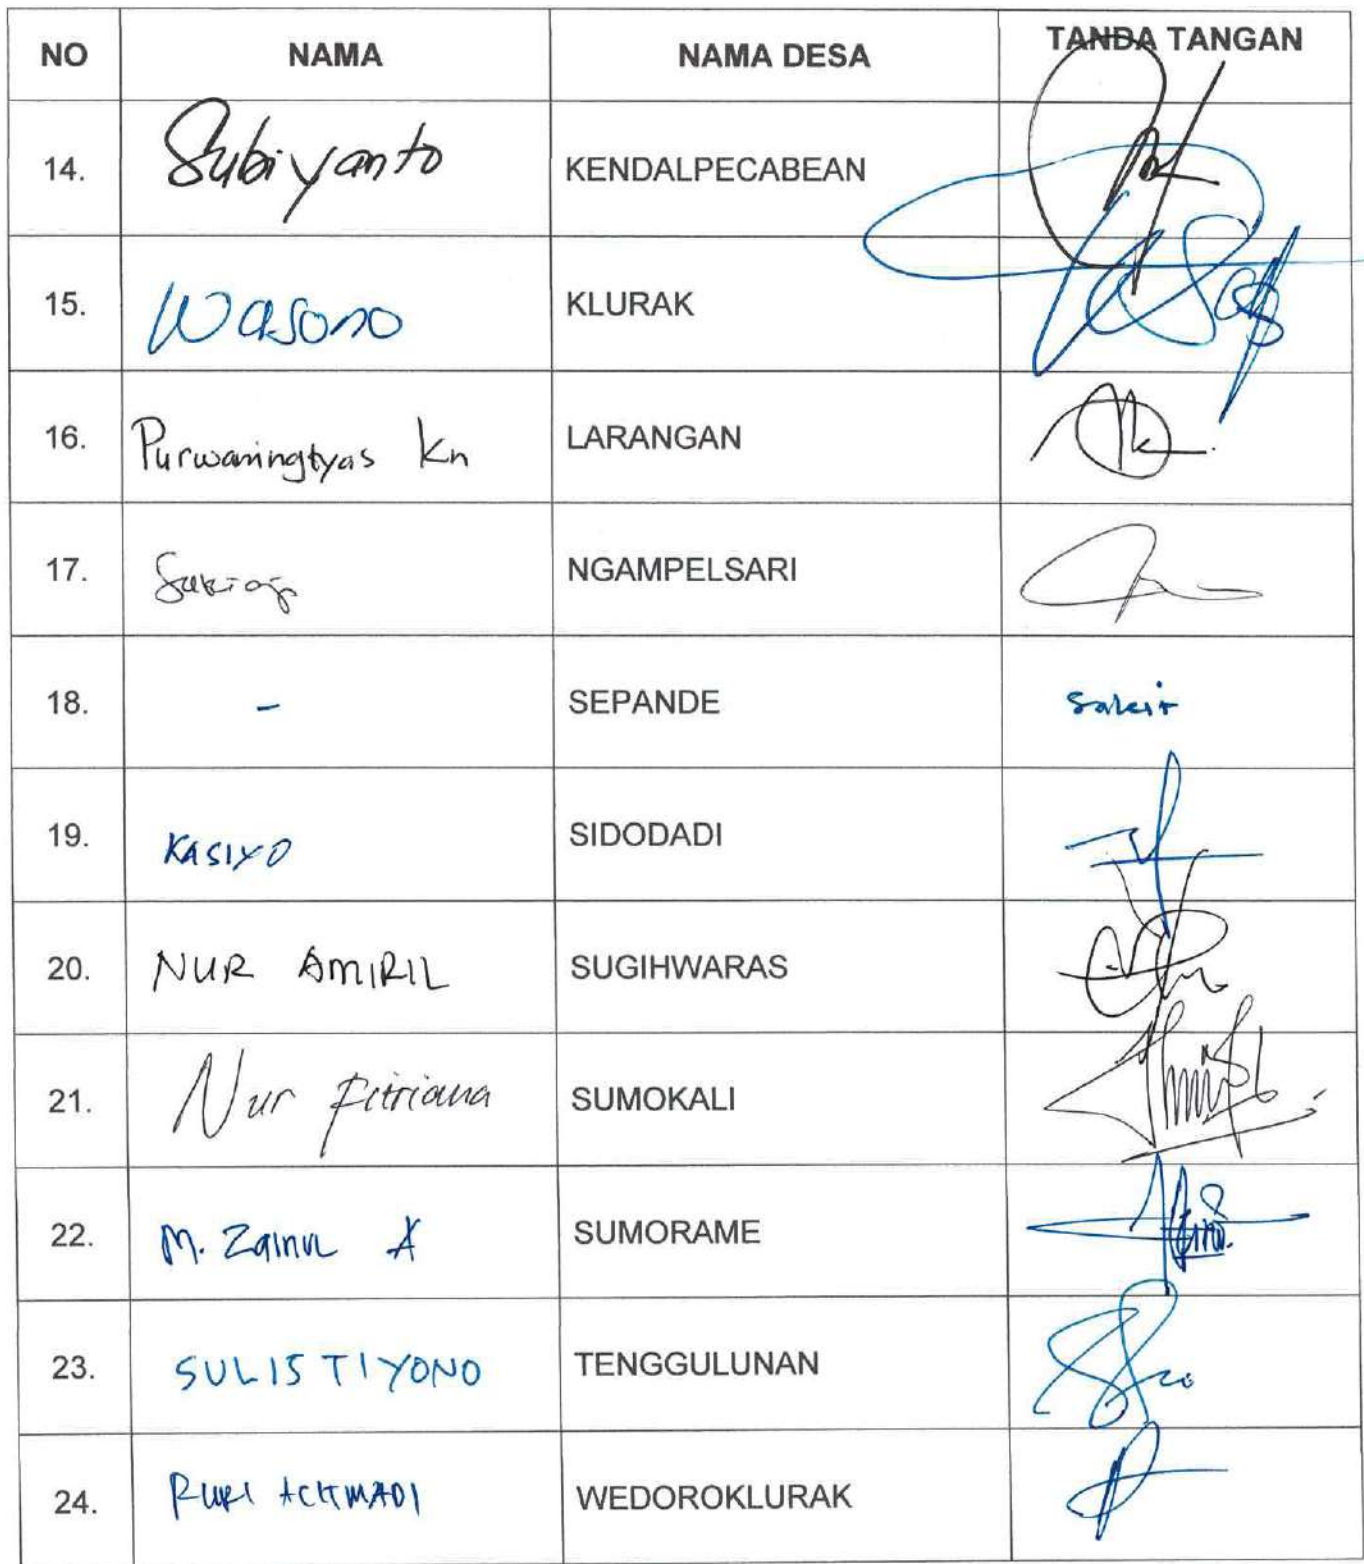 NO NAMA NAMA DESA TANDA TANGAN
14. Subiyanto KENDALPECABEAN
15. Wasono KLURAK
16. Purwaningtyas Kn LARANGAN
17. NGAMPELSARI
18. - SEPANDE Sakir
19. KASIYO SIDODADI
20. NUR AMIRIL SUGIHWARAS
21. Nur Fitriana SUMOKALI
22. M. Zainul A SUMORAME
23. SULISTIYONO TENGGULUNAN
24. RURI ACHMADI WEDOROKLURAK